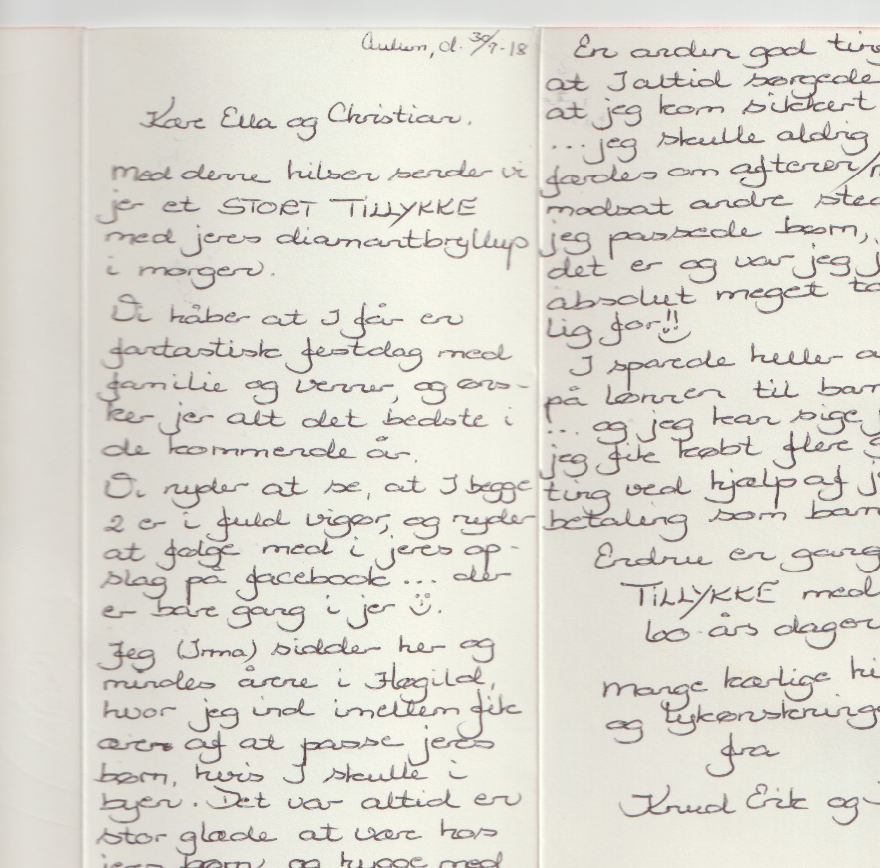 Aulum, d. 30/9-18
Kære Ella og Christian.
med denne hilsen sender vi
jer et STORT TILLYKKE
med jeres diamantbryllup
i morgen.
Vi håber at I får en
fantastisk festdag med
familie og venner, og øns-
ker jer alt det bedste i
de kommende år.
Vi nyder at se, at I begge
2 er i fuld vigør, og nyder
at følge med i jeres op-
slag på facebook ... der
er bare gang i jer ☺.
Jeg (Irma) sidder her og
mindes årene i Høgild,
hvor jeg ind imellem fik
æren af at passe jeres
børn, hvis I skulle i
byen. Det var altid en
stor glæde at være hos
jeres børn, og hygge med
En anden god ting
at I altid sørgede
at jeg kom sikkert
... jeg skulle aldrig
færdes om aftenen/
modsat andre sted
jeg passede børn,
det er og var jeg j
absolut meget ta
lig for!! ☺
I sparede heller
på lønnen til barn
... og jeg kan sige
jeg fik købt flere
ting ved hjælp af j
betaling som barn
Endnu en gang
TILLYKKE med
60-års dagen
mange kærlige hi
og lykønskninge
fra
Knud Erik og